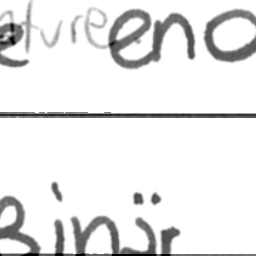 ature eno
Binär